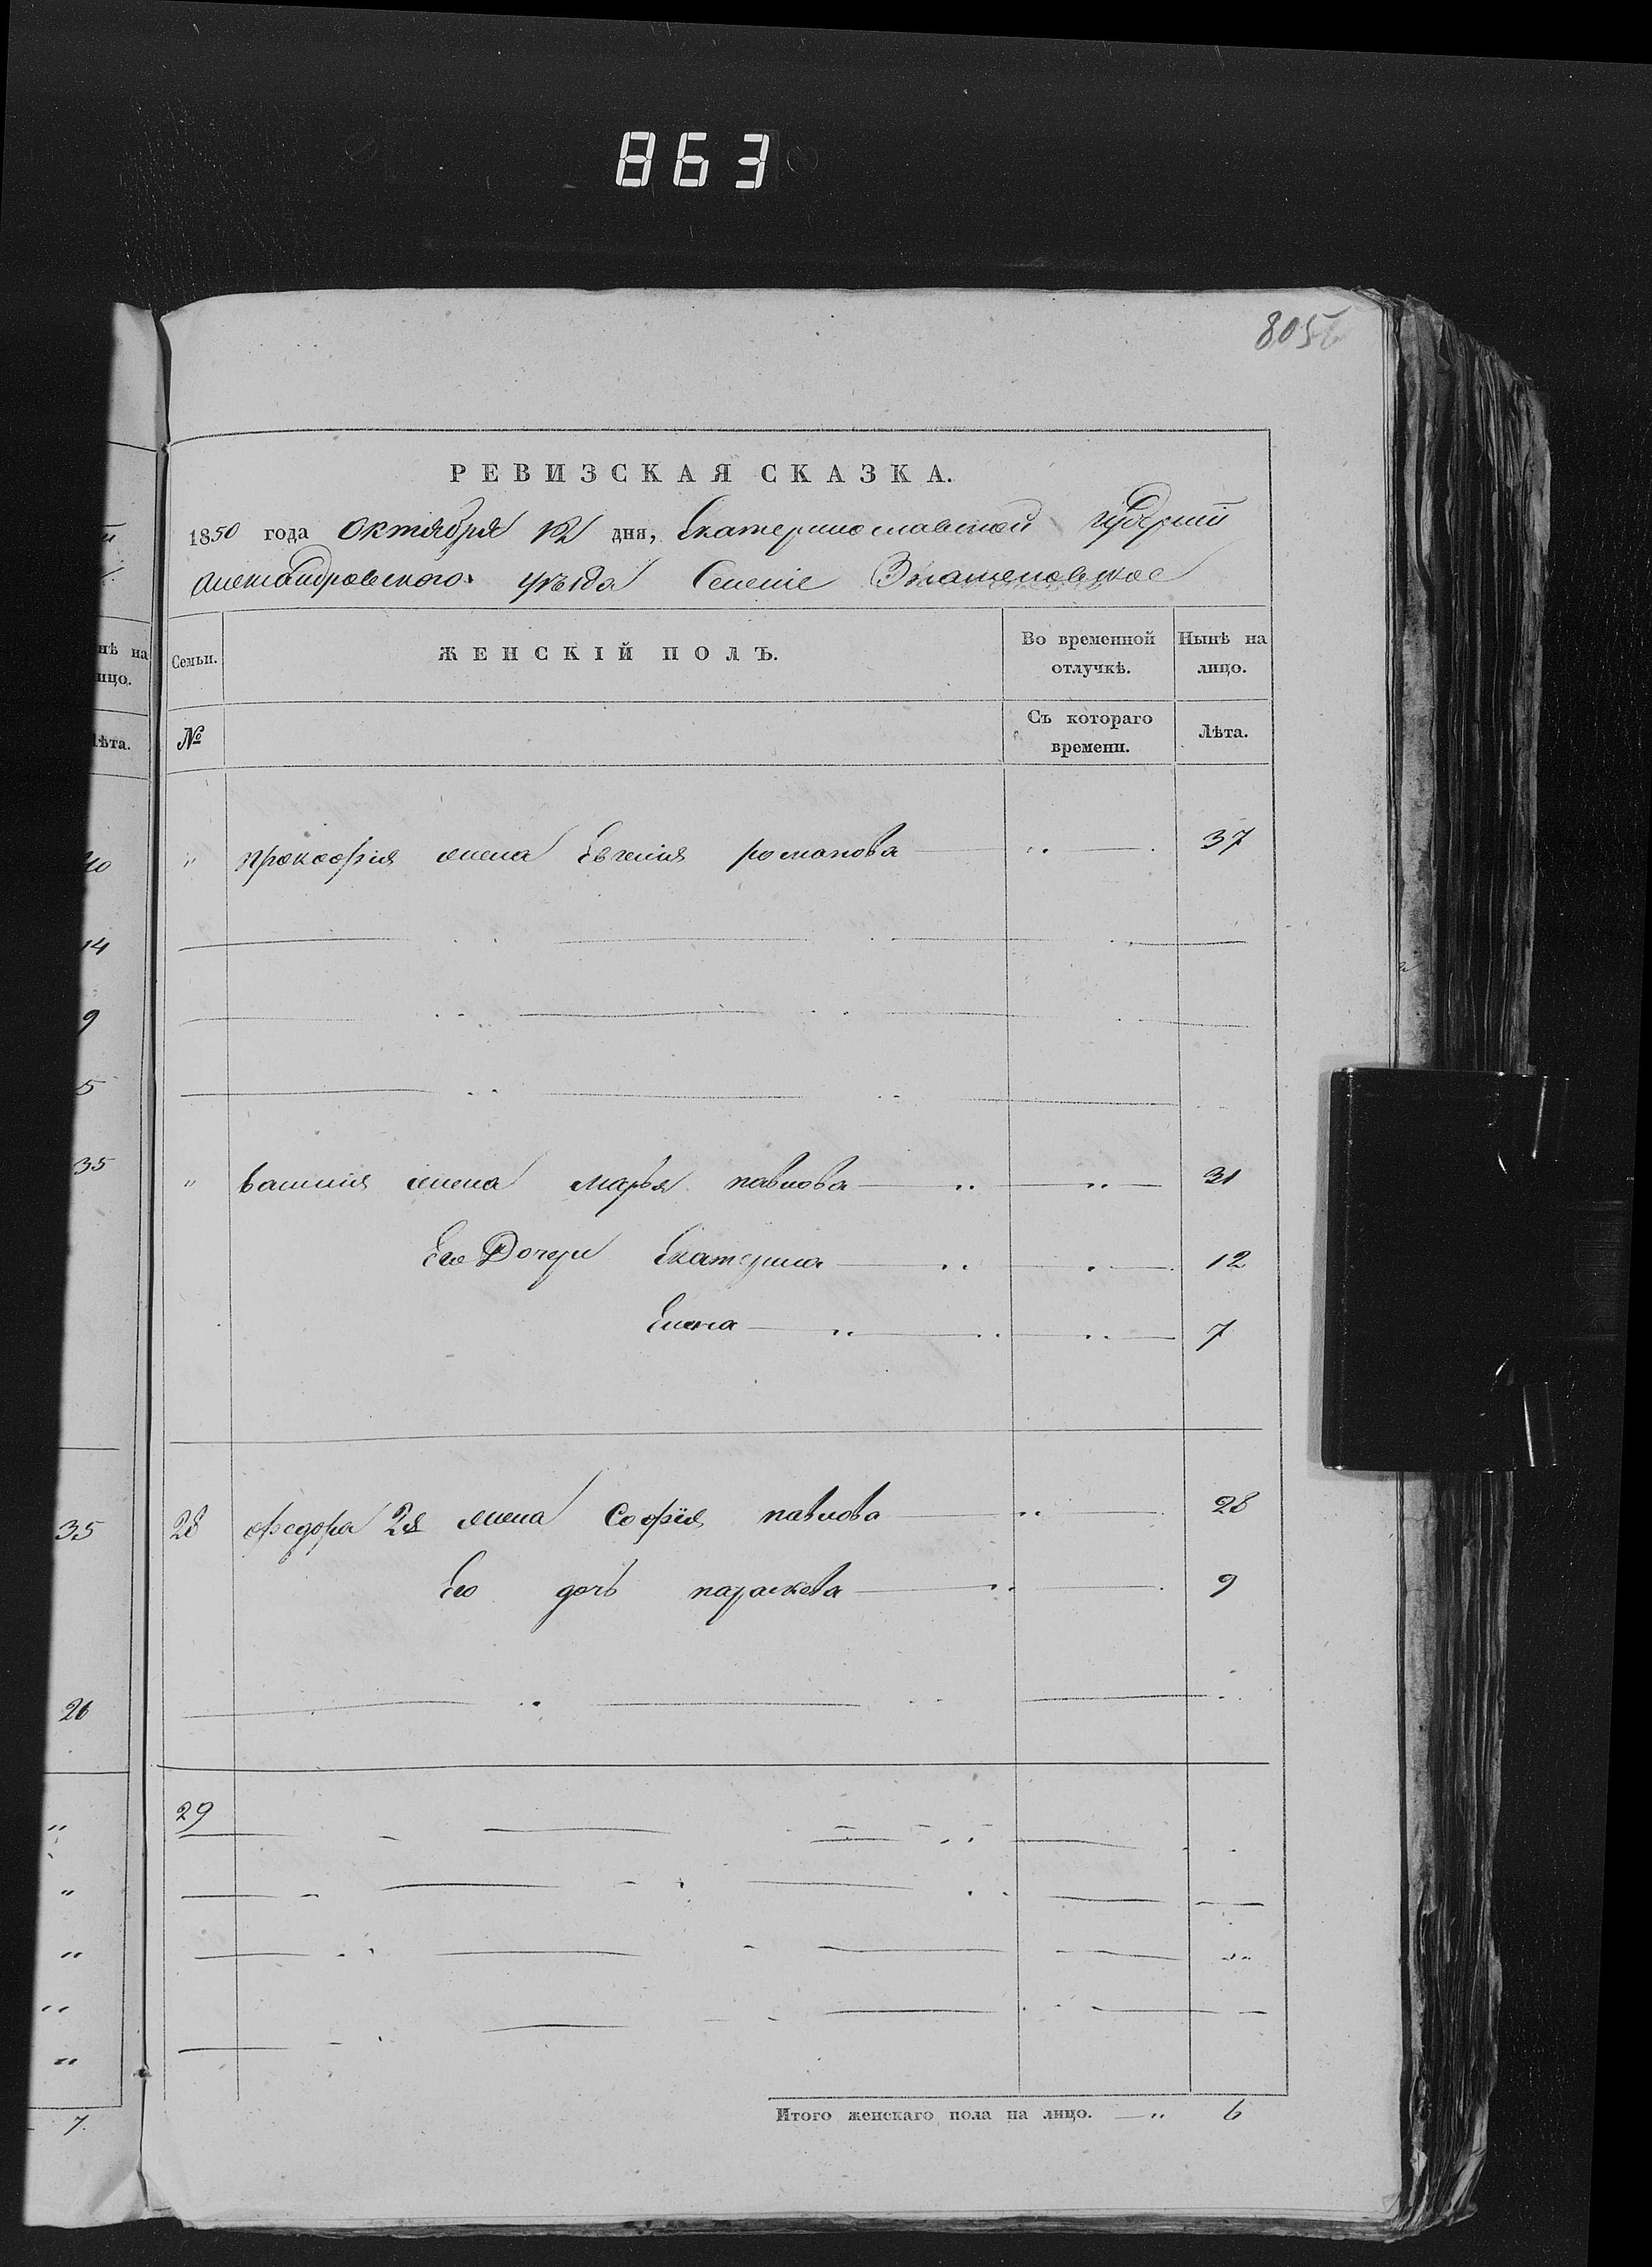 863
805
РЕВИЗСКАЯ СКАЗКА.
1850 года Октября 12 дня, Екатеринославской губернии
Александровского уѣзда Селеніе Знаменовское
Семьи. ЖЕНСКІЙ ПОЛЪ. Во временной отлучкѣ. Нынѣ на лицо.
№ Съ котораго времени. Лѣта.
" прокофія жена Евгенія романова " 37
" василия жена марья павлова " " 31
Его Дочери Екатерина " " 12
Елена " " " 7
28 федора 2й жена Софія павлова " 28
Его дочь параскева " 9
29
Итого женскаго пола на лицо. — " 6
нѣ на
ицо.
ѣта.
40
14
9
5
35
35
26
"
"
"
"
"
7.